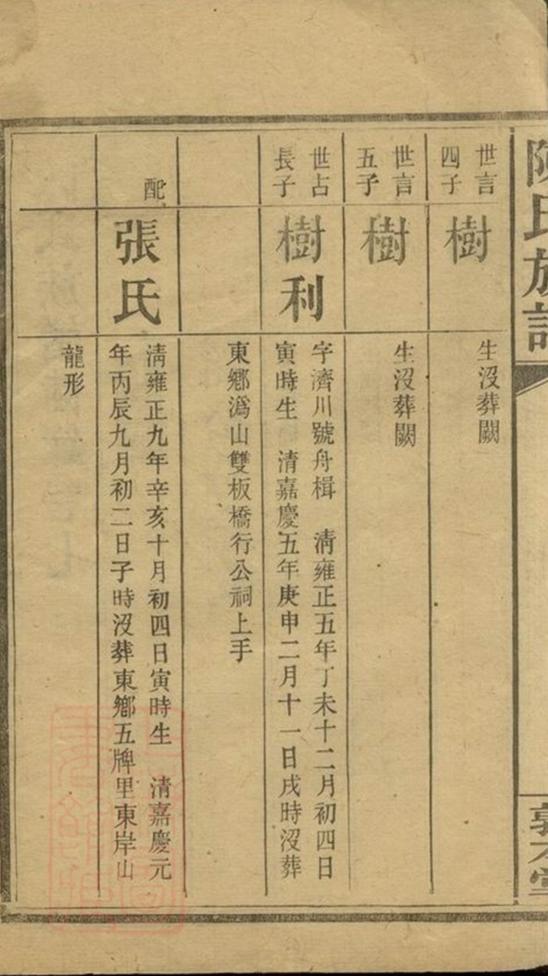 陳氏族譜
世言
四子
樹
生沒葬闕
世言
五子
樹
生沒葬闕
世占
長子
樹利
字濟川號舟楫　清雍正五年丁未十二月初四日
寅時生　清嘉慶五年庚申二月十一日戌時沒葬
東鄉潙山雙板橋行公祠上手
配
張氏
清雍正九年辛亥十月初四日寅時生　清嘉慶元
年丙辰九月初二日子時沒葬東鄉五牌里東岸山
龍形